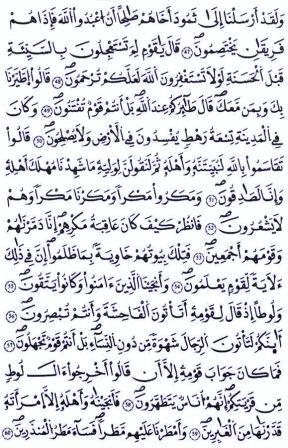 وَلَقَدْ أَرْسَلْنَا إِلَىٰ ثَمُودَ أَخَاهُمْ صَالِحًا أَنِ اعْبُدُوا اللَّهَ فَإِذَا هُمْ
فَرِيقَانِ يَخْتَصِمُونَ ﴿٤٥﴾ قَالَ يَا قَوْمِ لِمَ تَسْتَعْجِلُونَ بِالسَّيِّئَةِ
قَبْلَ الْحَسَنَةِ لَوْلَا تَسْتَغْفِرُونَ اللَّهَ لَعَلَّكُمْ تُرْحَمُونَ ﴿٤٦﴾ قَالُوا اطَّيَّرْنَا
بِكَ وَبِمَن مَّعَكَ قَالَ طَائِرُكُمْ عِندَ اللَّهِ بَلْ أَنتُمْ قَوْمٌ تُفْتَنُونَ ﴿٤٧﴾ وَكَانَ
فِي الْمَدِينَةِ تِسْعَةُ رَهْطٍ يُفْسِدُونَ فِي الْأَرْضِ وَلَا يُصْلِحُونَ ﴿٤٨﴾ قَالُوا
تَقَاسَمُوا بِاللَّهِ لَنُبَيِّتَنَّهُ وَأَهْلَهُ ثُمَّ لَنَقُولَنَّ لِوَلِيِّهِ مَا شَهِدْنَا مَهْلِكَ أَهْلِهِ
وَإِنَّا لَصَادِقُونَ ﴿٤٩﴾ وَمَكَرُوا مَكْرًا وَمَكَرْنَا مَكْرًا وَهُمْ
لَا يَشْعُرُونَ ﴿٥٠﴾ فَانظُرْ كَيْفَ كَانَ عَاقِبَةُ مَكْرِهِمْ أَنَّا دَمَّرْنَاهُمْ
وَقَوْمَهُمْ أَجْمَعِينَ ﴿٥١﴾ فَتِلْكَ بُيُوتُهُمْ خَاوِيَةً بِمَا ظَلَمُوا إِنَّ فِي ذَٰلِكَ
لَآيَةً لِّقَوْمٍ يَعْلَمُونَ ﴿٥٢﴾ وَأَنجَيْنَا الَّذِينَ آمَنُوا وَكَانُوا يَتَّقُونَ ﴿٥٣﴾
وَلُوطًا إِذْ قَالَ لِقَوْمِهِ أَتَأْتُونَ الْفَاحِشَةَ وَأَنتُمْ تُبْصِرُونَ ﴿٥٤﴾
أَئِنَّكُمْ لَتَأْتُونَ الرِّجَالَ شَهْوَةً مِّن دُونِ النِّسَاءِ بَلْ أَنتُمْ قَوْمٌ تَجْهَلُونَ ﴿٥٥﴾
فَمَا كَانَ جَوَابَ قَوْمِهِ إِلَّا أَن قَالُوا أَخْرِجُوا آلَ لُوطٍ
مِّن قَرْيَتِكُمْ إِنَّهُمْ أُنَاسٌ يَتَطَهَّرُونَ ﴿٥٦﴾ فَأَنجَيْنَاهُ وَأَهْلَهُ إِلَّا امْرَأَتَهُ
قَدَّرْنَاهَا مِنَ الْغَابِرِينَ ﴿٥٧﴾ وَأَمْطَرْنَا عَلَيْهِم مَّطَرًا فَسَاءَ مَطَرُ الْمُنذَرِينَ ﴿٥٨﴾